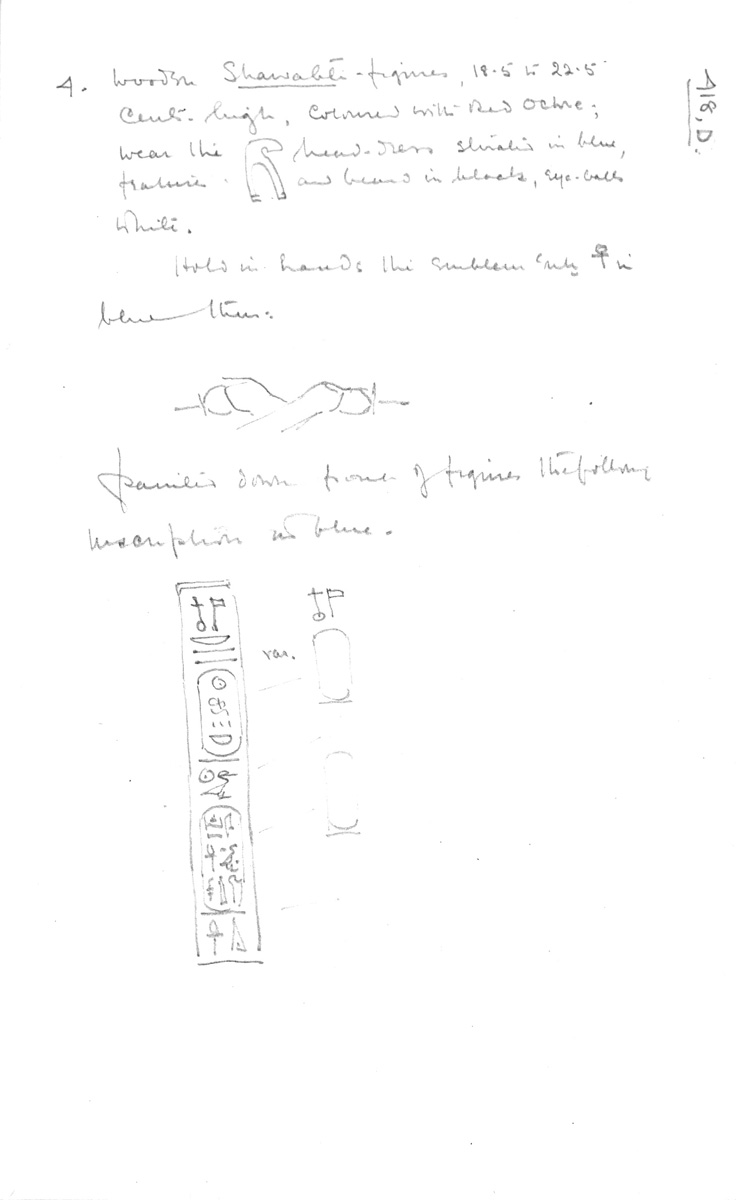 A18, D.
4. Wooden Shawabti-figures, 18.5 to 22.5
Cent. high, coloured with Red Ochre;
wear the head-dress striated in blue,
features and beard in black, eye-balls
white.
Hold in hands the emblem only 𓋹 in
blue thus:
Painted down front of figures the following
inscription in blue.
var.